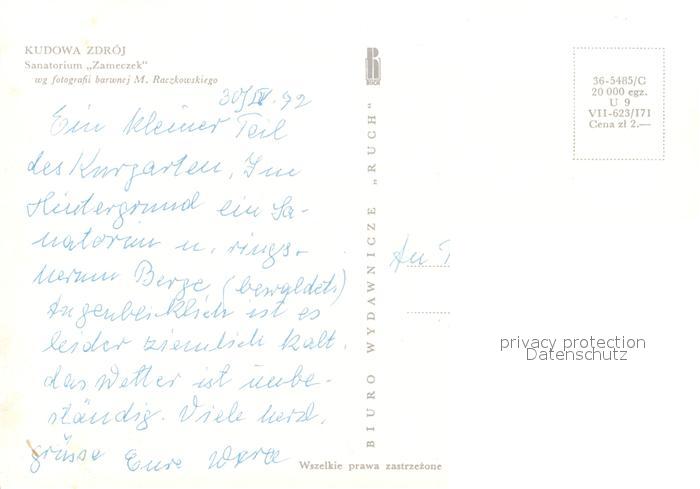 KUDOWA ZDRÓJ
Sanatorium „Zameczek"
wg fotografii barwnej M. Raczkowskiego
30/IV. 72
Ein kleiner Teil
des Kurgarten, Im
Hintergrund ein Sa-
natorium u. rings-
herum Berge (bewaldet)
Augenblicklich ist es
leider ziemlich kalt.
das Wetter ist unbe-
ständig. Viele herzl.
grüsse Eure
RUCH
BIURO WYDAWNICZE „RUCH"
36-5485/G
20 000 egz.
U 9
VII-623/171
Cena zł 2.—
An
privacy protection
Datenschutz
Wszelkie prawa zastrzeżone